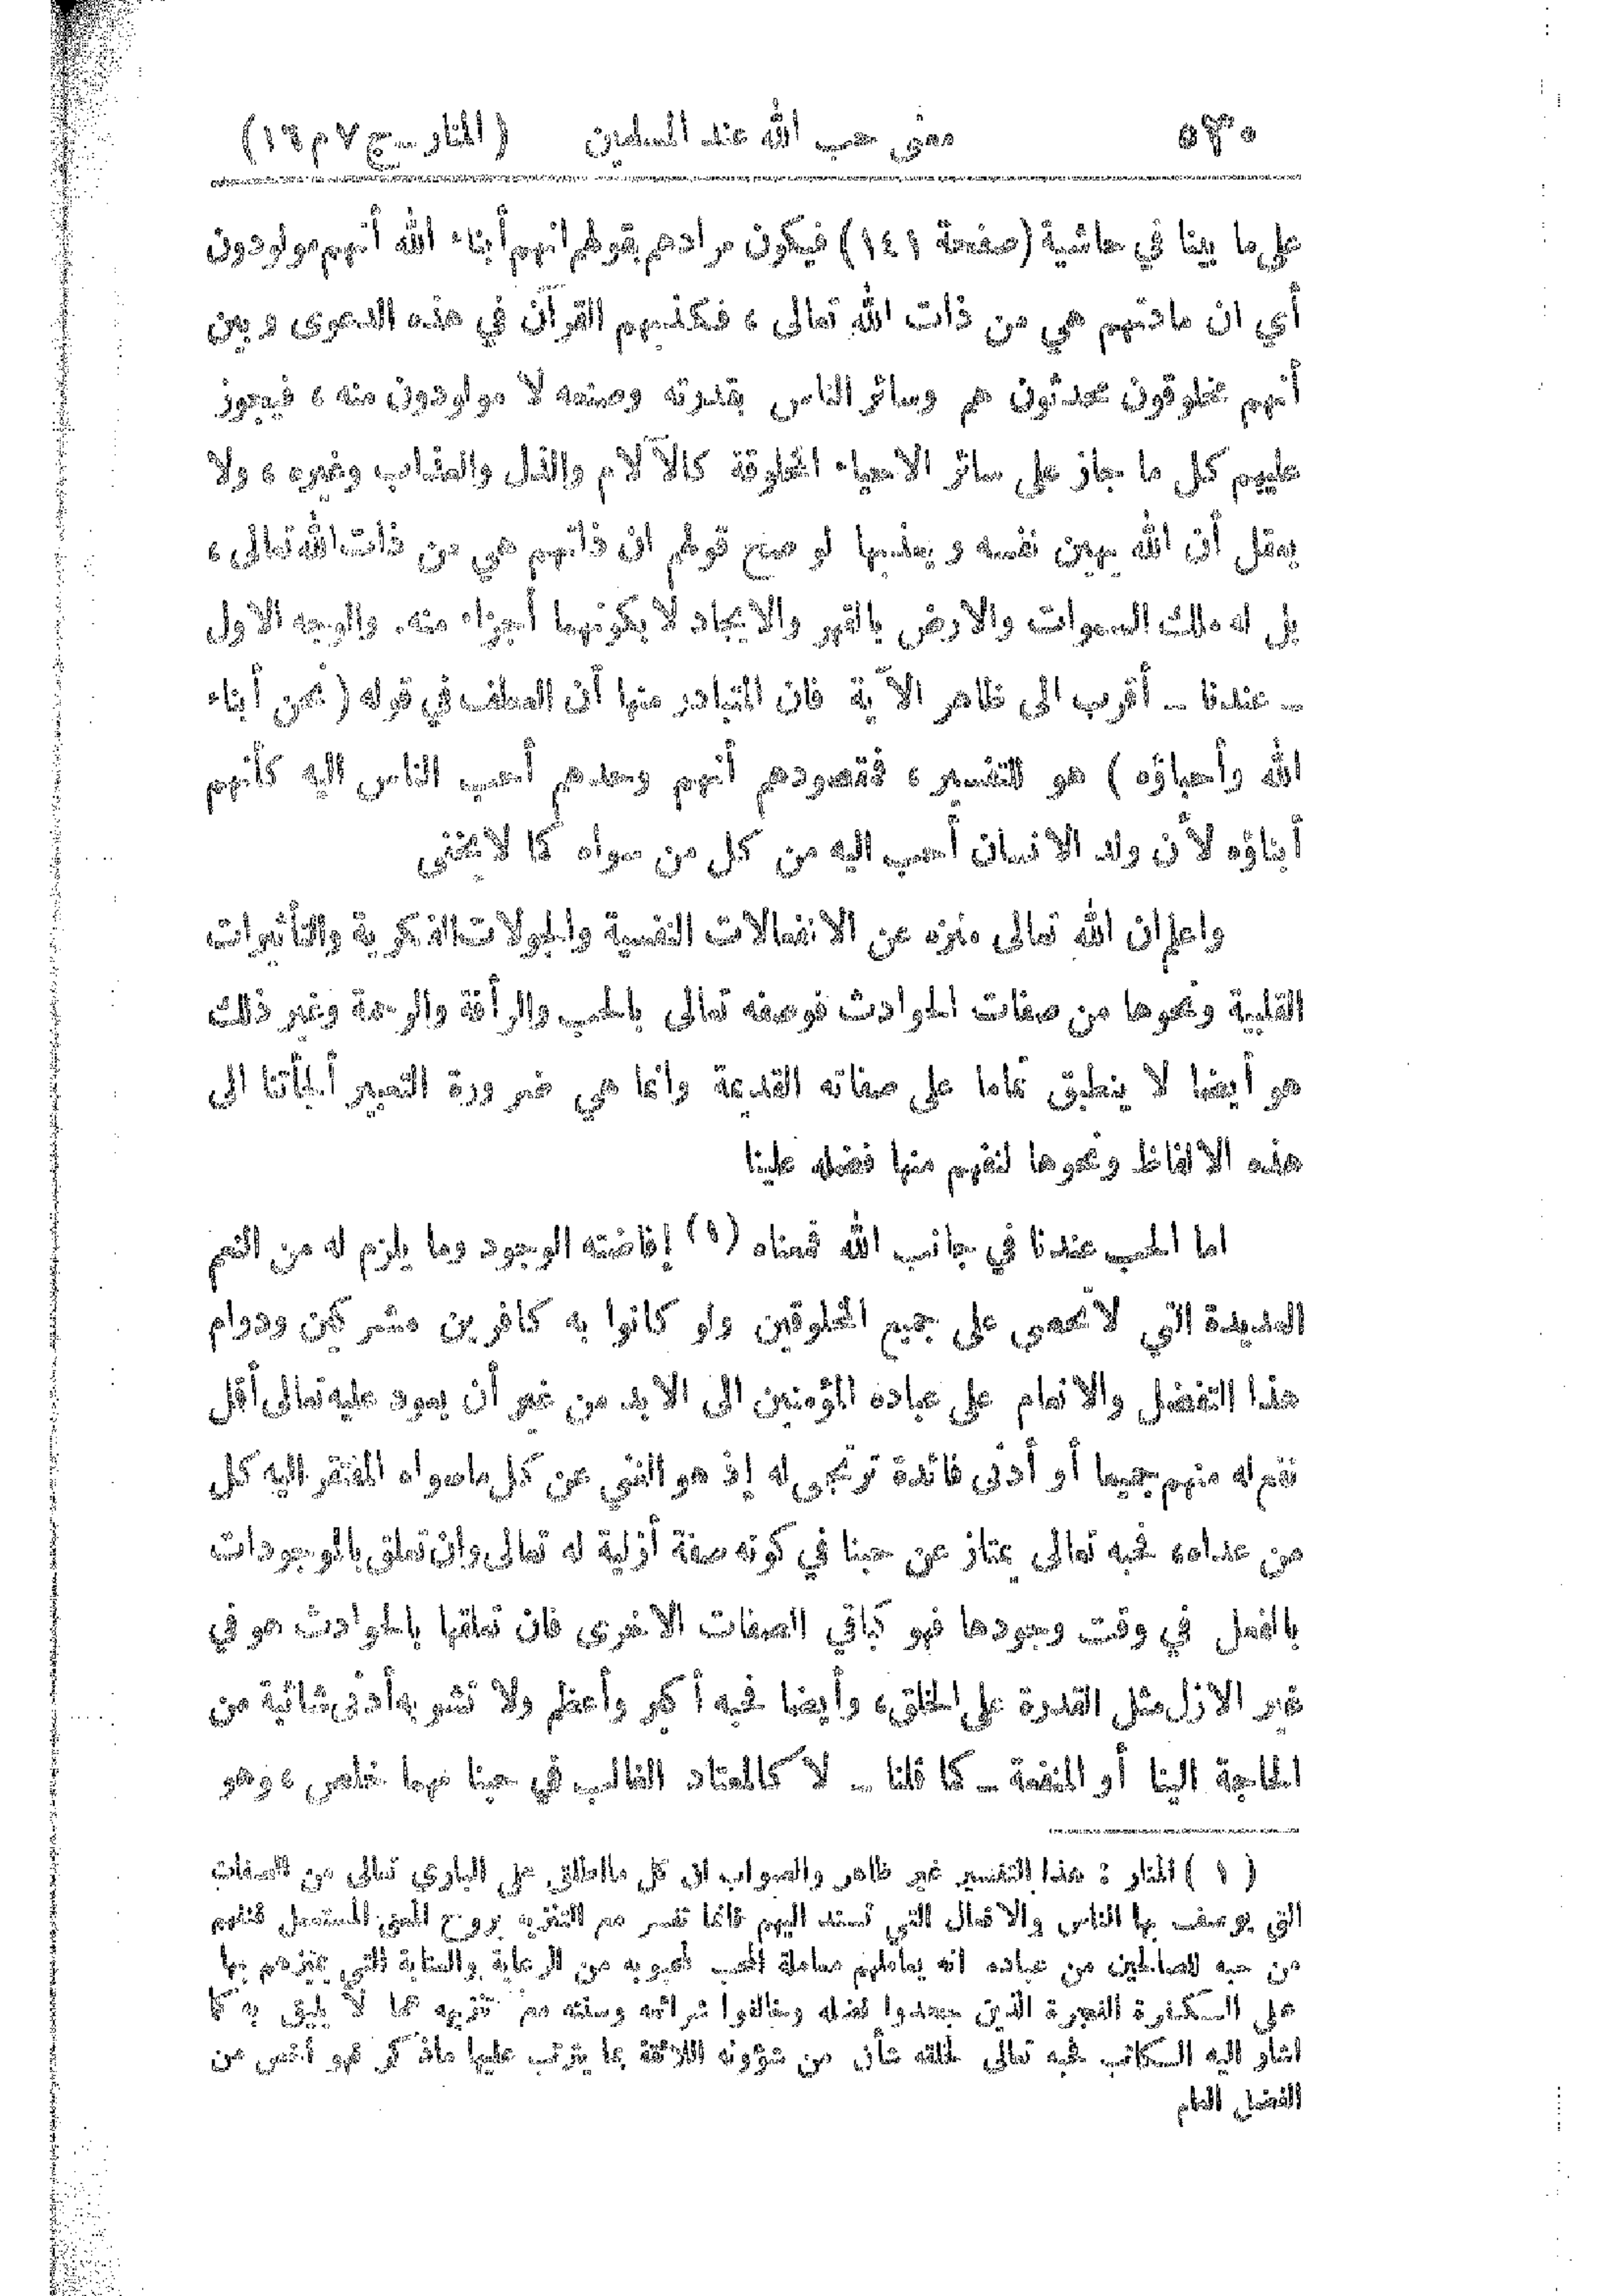 ٥٣٠ معنى حب الله عند المسلمين (المنار ـ ج ٧ م ١٦)
على ما بينا في حاشية (صفحة ١٤١) فيكون مرادهم بقولهم انهم أبناء الله أنهم مولودون
أي ان مادتهم هي من ذات الله تعالى ، فكذبهم القرآن في هذه الدعوى وبين
أنهم مخلوقون محدثون هم وسائر الناس بقدرته وصنعه لا مولودون منه ، فيجوز
عليهم كل ما جاز على سائر الاحياء المخلوقة كالآلام والذل والعذاب وغيره ، ولا
يعقل أن الله يهين نفسه ويعذبها لو صح قولهم ان ذاتهم هي من ذات الله تعالى ،
بل له ملك السموات والارض بالقهر والايجاد لا بكونهما أجزاء منه . والوجه الاول
ـ عندنا ـ أقرب الى ظاهر الآية فان المتبادر منها أن العطف في قوله ( نحن أبناء
الله وأحباؤه ) هو للتفسير ، فمقصودهم أنهم وحدهم أحب الناس اليه كأنهم
أبناؤه لأن ولد الانسان أحب اليه من كل من سواه كما لا يخفى
واعلم ان الله تعالى منزه عن الانفعالات النفسية والجولات الفكرية والتأثيرات
القلبية ونحوها من صفات الحوادث فوصفه تعالى بالحب والرأفة والرحمة وغير ذلك
هو أيضا لا ينطبق تماما على صفاته القديمة وانما هي ضرورة التعبير ألجأتنا الى
هذه الالفاظ ونحوها لنفهم منها فضله علينا
اما الحب عندنا في جانب الله فمعناه (١) إفاضته الوجود وما يلزم له من النعم
العديدة التي لا تحصى على جميع المخلوقين ولو كانوا به كافرين مشركين ودوام
هذا التفضل والانعام على عباده المؤمنين الى الابد من غير أن يعود عليه تعالى أقل
نفع له منهم جميعا أو أدنى فائدة ترتجى له إذ هو الغني عن كل ما سواه المفتقر اليه كل
من عداه ، فحبه تعالى يمتاز عن حبنا في كونه صفة أزلية له تعالى وان تعلق بالموجودات
بالفعل في وقت وجودها فهو كباقي الصفات الاخرى فان تعلقها بالحوادث هو في
غير الازل مثل القدرة على الخلق ، وأيضا فحبه أكبر وأعظم ولا تشوبه أدنى شائبة من
الحاجة الينا أو المنفعة ـ كما قلنا ـ لا كالمعتاد الغالب في حبنا مهما خلص ، وهو
( ١ ) المنار : هذا التفسير غير ظاهر والصواب ان كل ما اطلق على الباري تعالى من الصفات
التي يوصف بها الناس والافعال التي تسند اليهم فانما تفسر مع التنزيه بروح المعنى المستعمل فنفهم
من حبه للصالحين من عباده انه يعاملهم معاملة المحب لمحبوبه من الرعاية والعناية التي يميزهم بها
على الكفرة الفجرة الذين جحدوا فضله وخالفوا شرائعه وسننه مع تنزيهه عما لا يليق به كما
اشار اليه الكاتب فحبه تعالى لخلقه شأن من شؤونه اللائقة بما يترتب عليها ماذكر فهو أخص من
الفضل العام